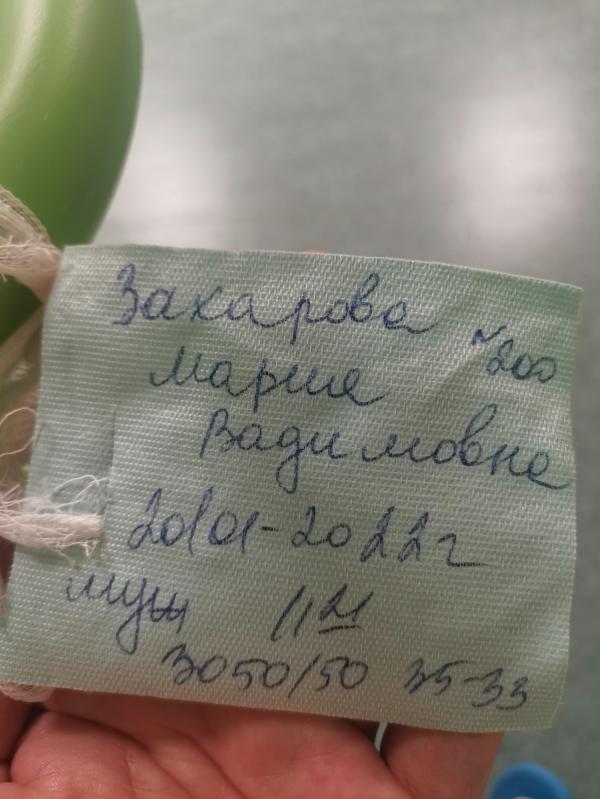 Захарова
№200
Мария
Вадимовна
20/01-2022г
муж 11 21
3050/50 35-33